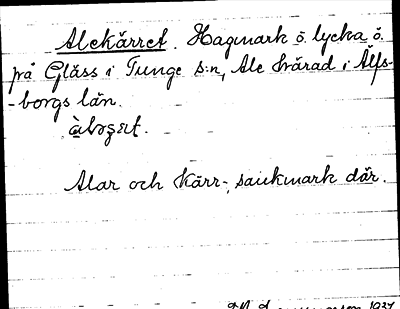 Alekärret. Hagmark ö. lycka ö.
på Gläss i Tunge s:n, Ale härad i Älfs-
-borgs län.
Alar och kärr-, sankmark där.
1927